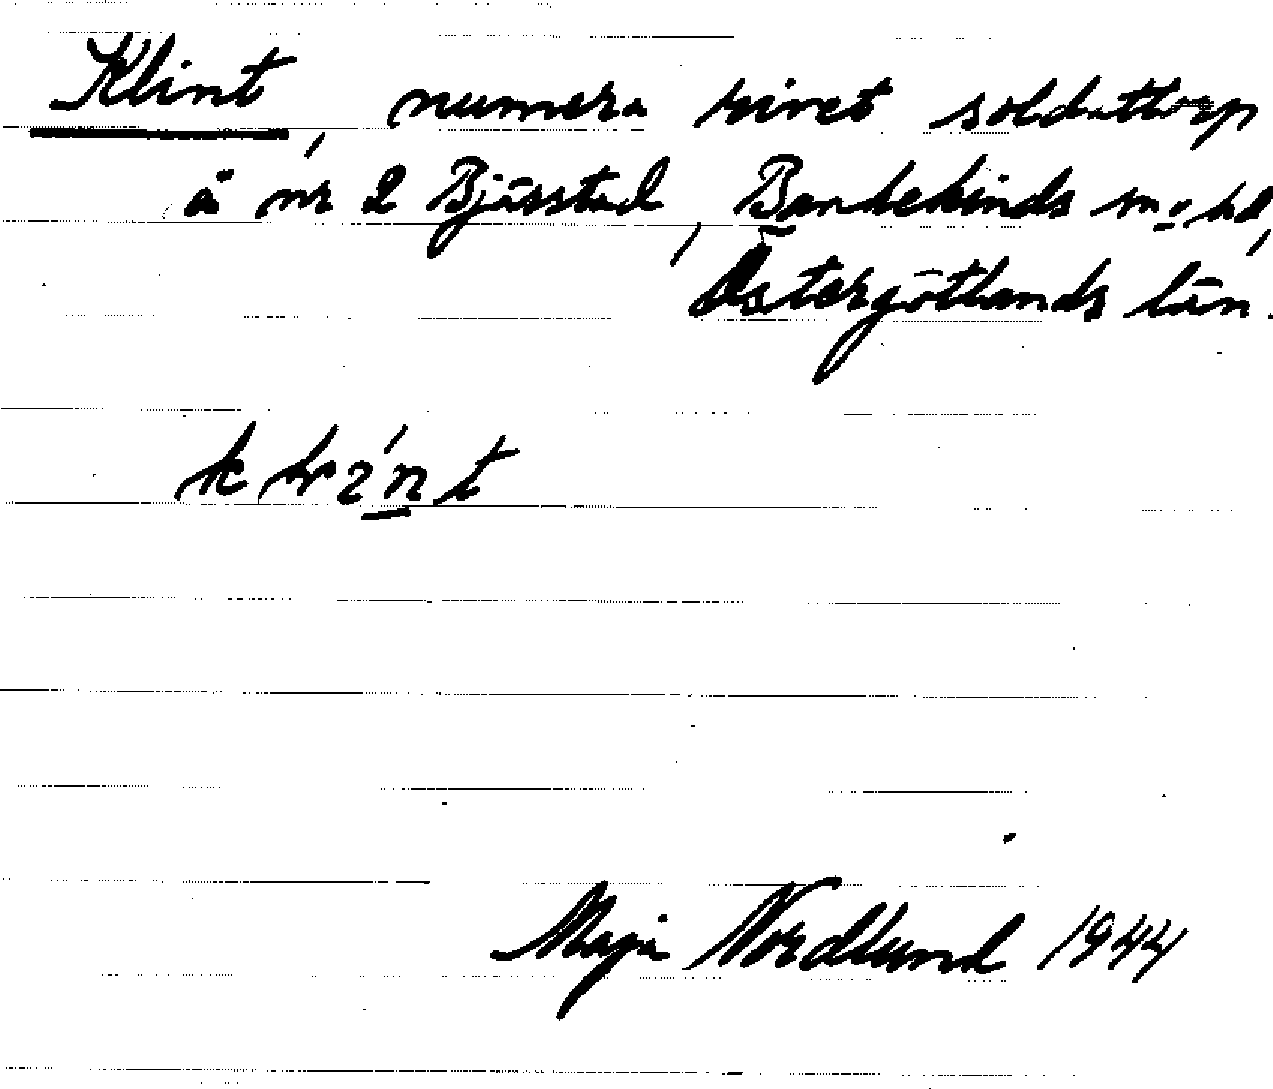 Klint, numera rivet soldattorp
å nr 2 Bjärstad, Bankekinds sn o hd,
Östergötlands län.
Maja Nordlund 1944